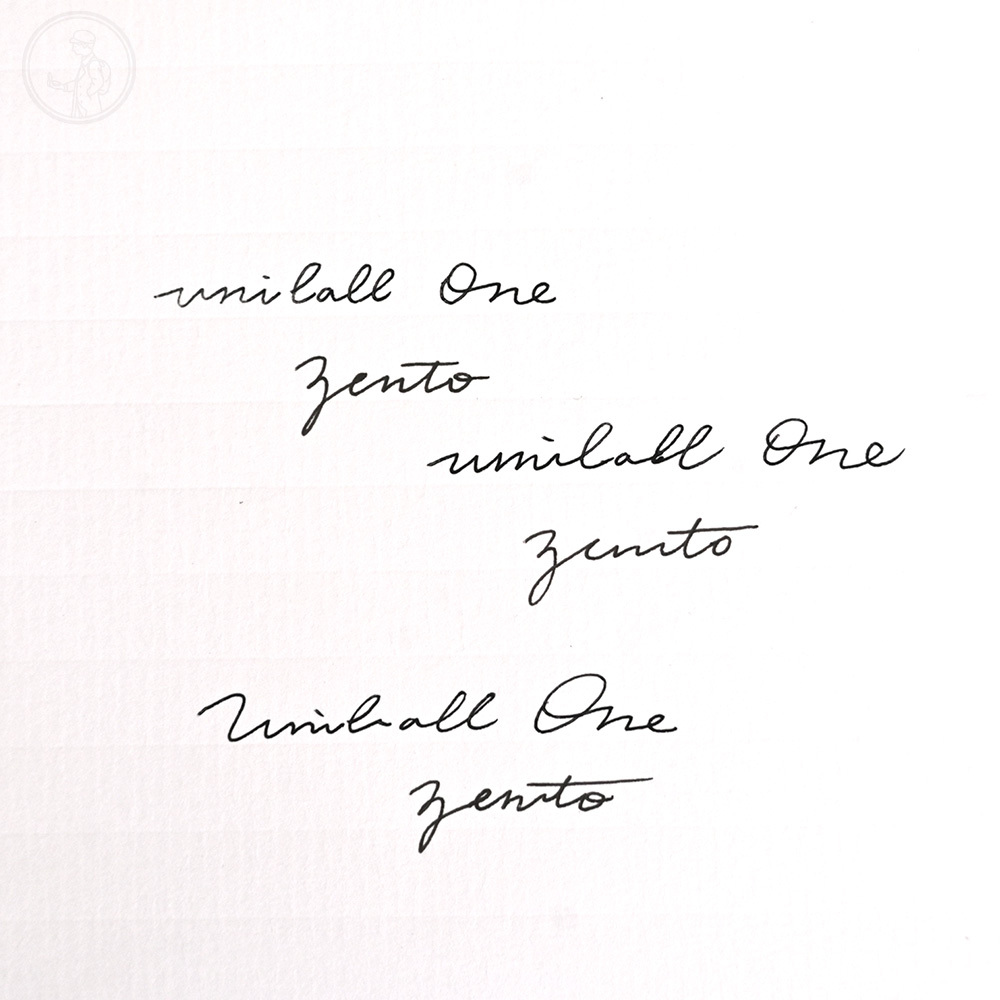 uniball One
zento
uniball One
zento
Uniball One
zento